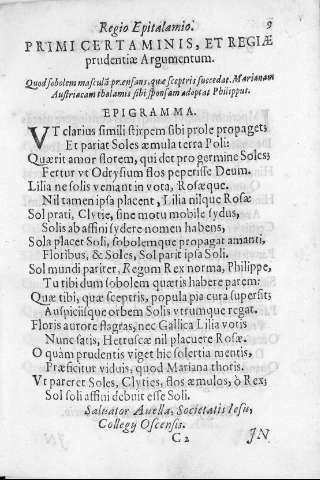 Regio Epitalamio. 9
PRIMI CERTAMINIS, ET REGIÆ
prudentiæ Argumentum.
Quod sobolem masculã præensans, quæ sceptris succedat, Marianam
Austriacam thalamis sibi sponsam adoptat Philippus.
EPIGRAMMA.
VT clarius simili stirpem sibi prole propaget;
Et pariat Soles æmula terra Poli:
Quærit amor florem, qui det pro germine Soles;
Fertur vt Odrysium flos peperisse Deum.
Lilia ne solis veniant in vota, Rosæque.
Nil tamen ipsa placent, Lilia nilque Rosæ
Sol prati, Clytie, sine motu mobile sydus,
Solis ab affini sydere nomen habens,
Sola placet Soli, sobolemque propagat amanti,
Floribus, & Soles, Sol parit ipsa Soli.
Sol mundi pariter, Regum Rex norma, Philippe,
Tu tibi dum sobolem quæris habere parem:
Quæ tibi, quæ sceptris, populo pia cura supersit;
Auspicijsque orbem Solis vtrumque regat.
Floris aurore flagras, nec Gallica Lilia votis
Nunc satis, Hetruscæ nil placuere Rosæ.
O quàm prudentis viget hic solertia mentis,
Præficitur viduis, quod Mariana thoris.
Vt pareret Soles, Clyties, flos æmulos, ò Rex;
Sol soli affini debuit esse Soli.
Saluator Auella, Societatis Iesu,
Collegy Oscensis.
C 2 IN